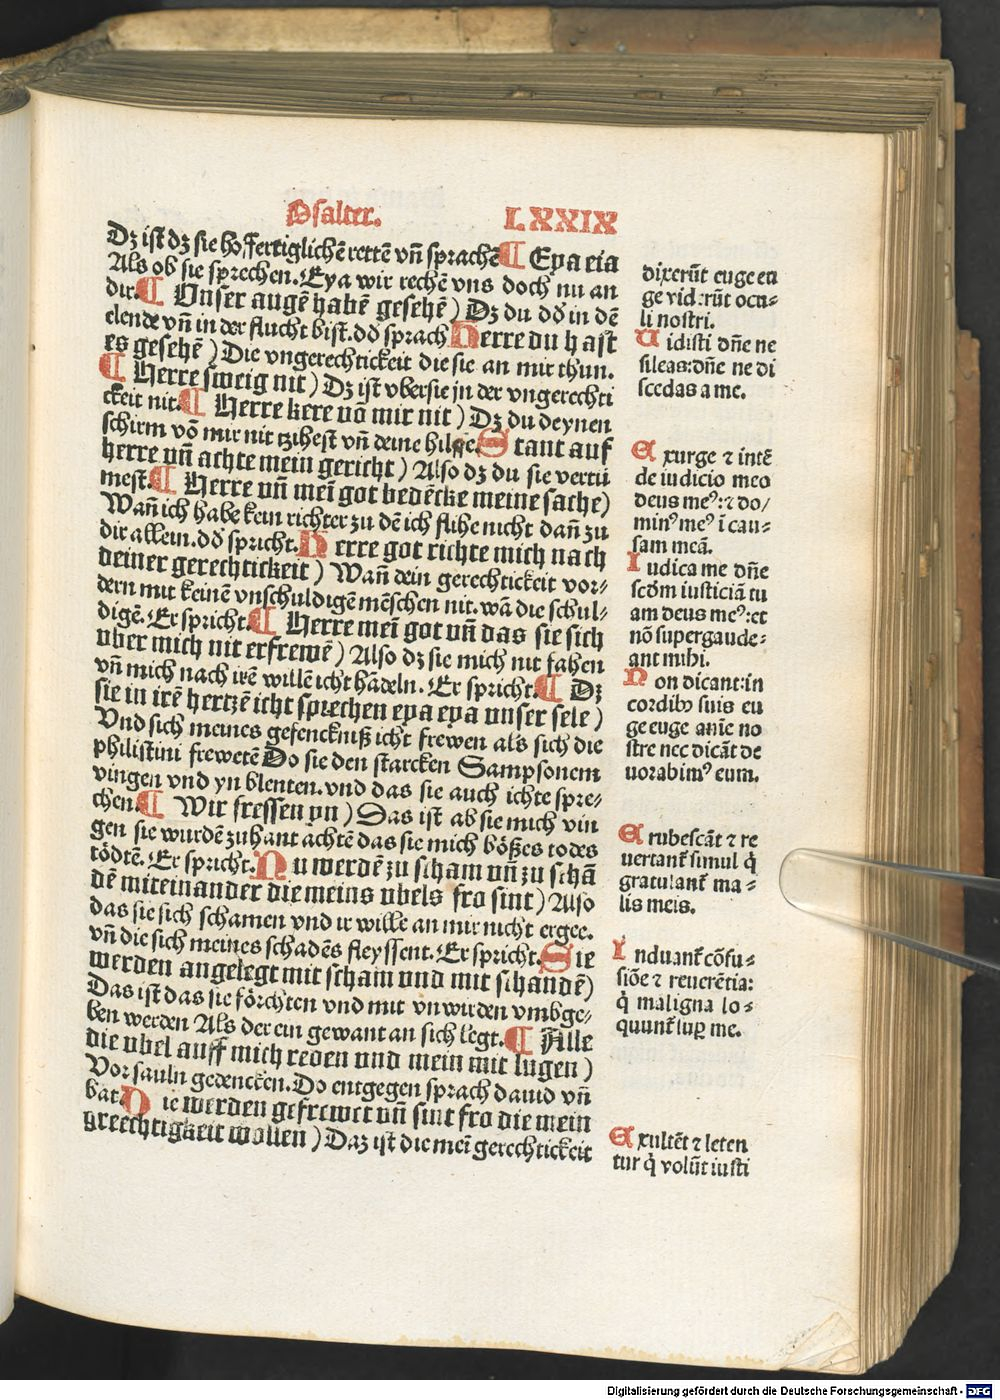 Psalter. LXXIX
Dz ist dz sie hoffertiglichē rettē vn̄ sprachē ¶ Eya eia
Als ob sie sprechen. Eya wir rechē vns doch nu an
dir. ¶ Unser augē habē gesehē) Dz du dō in dē
elende vn̄ in der flucht bist. dō sprach Herre du hast
es gesehē) Die vngerechtickeit die sie an mir thun.
¶ Herre sweig nit) Dz ist vbersie in der vngerechti
ckeit nit. ¶ Herre kere vō mir nit) Dz du deynen
schirm vō mir nit tzihest vn̄ deine hilffe. Stant auf
herre vn̄ achte mein gericht) Also dz du sie vertū
mest. ¶ Herre vn̄ mei͂ got bedēcke meine sache)
Wan̄ ich habe kein richter zu dē ich flihe nicht dan̄ zu
dir allein. dō spricht. Herre got richte mich nach
deiner gerechtickeit) Wan̄ dein gerechtickeit vor-
dern mit keinē vnschuldigē mēschen nit. wā die schul-
digē. Er spricht. ¶ Herre mei͂ got vn̄ das sie sich
vber mich nit erfrewē) Also dz sie mich nit fahen
vn̄ mich nach irē willē icht hādeln. Er spricht. ¶ Dz
sie in irē hertzē icht sprechen eya eya vnser sele)
Vnd sich meines gefenckniß icht frewen als sich die
philistini frewetē Do sie den starcken Sampsonem
vingen vnd yn blenten. vnd das sie auch ichte spre-
chen. ¶ Wir fressen yn) Das ist ab sie mich vin
gen sie wurdē zuhant achtē das sie mich bößes todes
tödtē. Er spricht. Nu werdē zu scham vn̄ zu schā
dē miteinander die meins vbels fro sint) Also
das sie sich schamen vnd ir wille an mir nicht ergee.
vn̄ die sich meines schadēs fleyssent. Er spricht. Sie
werden angelegt mit scham vnd mit schandē)
Das ist das sie förchten vnd mit vnwirden vmbge-
ben werden Als der ein gewant an sich legt. ¶ Alle
die vbel auff mich reden vnd mein mit lugen)
Vor sauln gedencken. Do entgegen sprach dauid vn̄
bat. Die werden gefrewet vn̄ sint fro die mein
greechtigkeit wollen) Daz ist die mei͂ gerechtickeit
dixerūt euge eu
ge viderūt ocu-
li nostri.
Uidisti dn̄e ne
sileas: dn̄e ne di
scedas a me.
Exurge ⁊ intē
de iudicio meo
deus meꝰ: ⁊ do/
minꝰ meꝰ ī cau-
sam meā.
Iudica me dn̄e
scd̄m iusticiā tu
am deus meꝰ: et
nō supergaude-
ant mihi.
Non dicant: in
cordibꝫ suis eu
ge euge an̄ie no
stre nec dicāt de
uorabimꝰ eum.
Erubescāt ⁊ re
uertant᷑ simul q̇
gratulant᷑ ma-
lis meis.
Induant᷑ cōfu-
siōe ⁊ reuerētia:
q̇ maligna lo-
quunt᷑ suꝑ me.
Exultēt ⁊ leten
tur q̇ volūt iusti
Digitalisierung gefördert durch die Deutsche Forschungsgemeinschaft - DFG